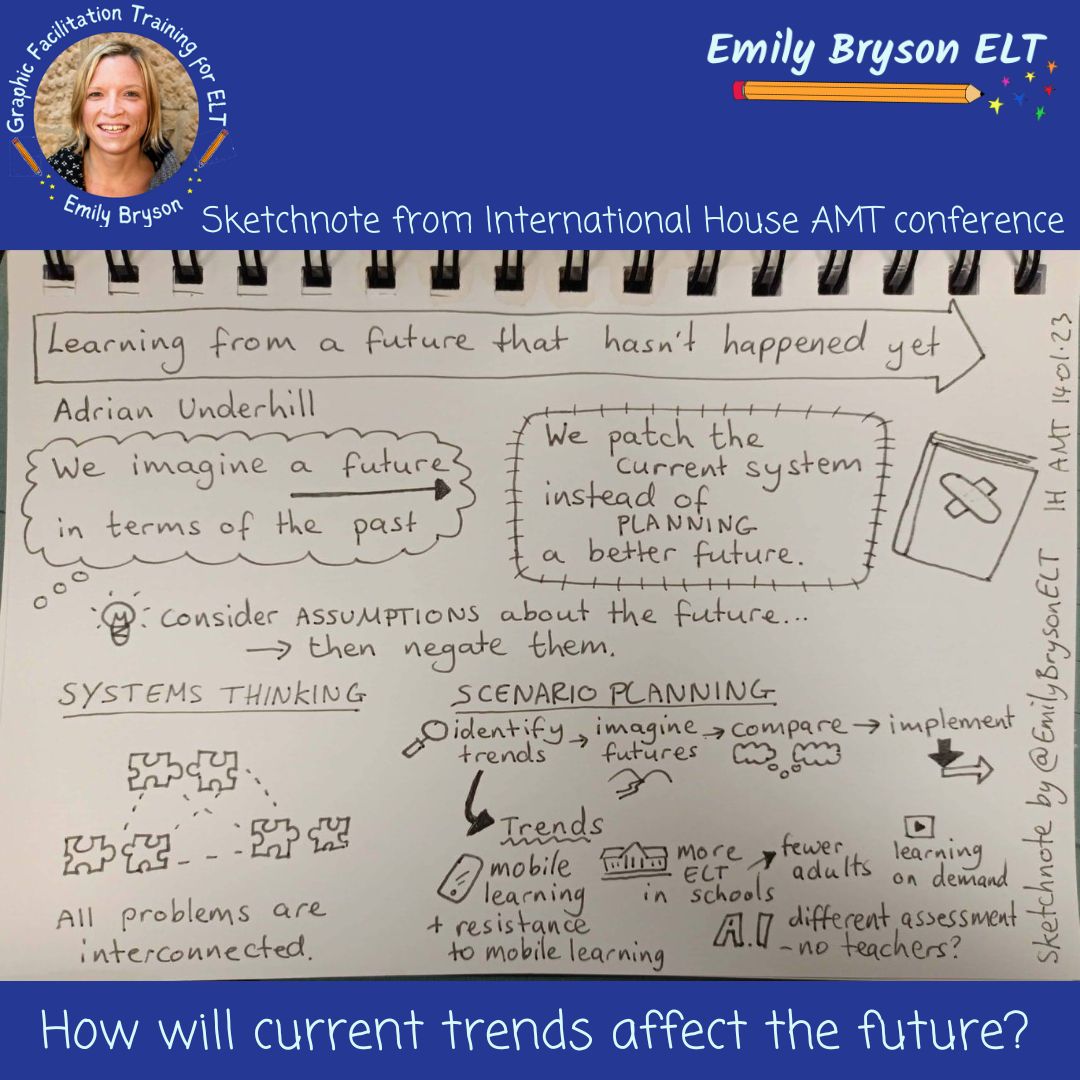 Graphic Facilitation Training for ELT
Emily Bryson
Emily Bryson ELT
Sketchnote from International House AMT conference
Learning from a future that hasn't happened yet
Adrian Underhill
We imagine a future
in terms of the past
We patch the
current system
instead of
PLANNING
a better future.
consider ASSUMPTIONS about the future...
→ then negate them.
SYSTEMS THINKING
All problems are
interconnected.
SCENARIO PLANNING
identify
trends
→ imagine
futures
→ compare
→ implement
Trends
mobile
learning
+ resistance
to mobile learning
more
ELT
in schools
fewer
adults
learning
on demand
A.I
different assessment
- no teachers?
Sketchnote by @EmilyBrysonELT IH AMT 14.01.23
How will current trends affect the future?